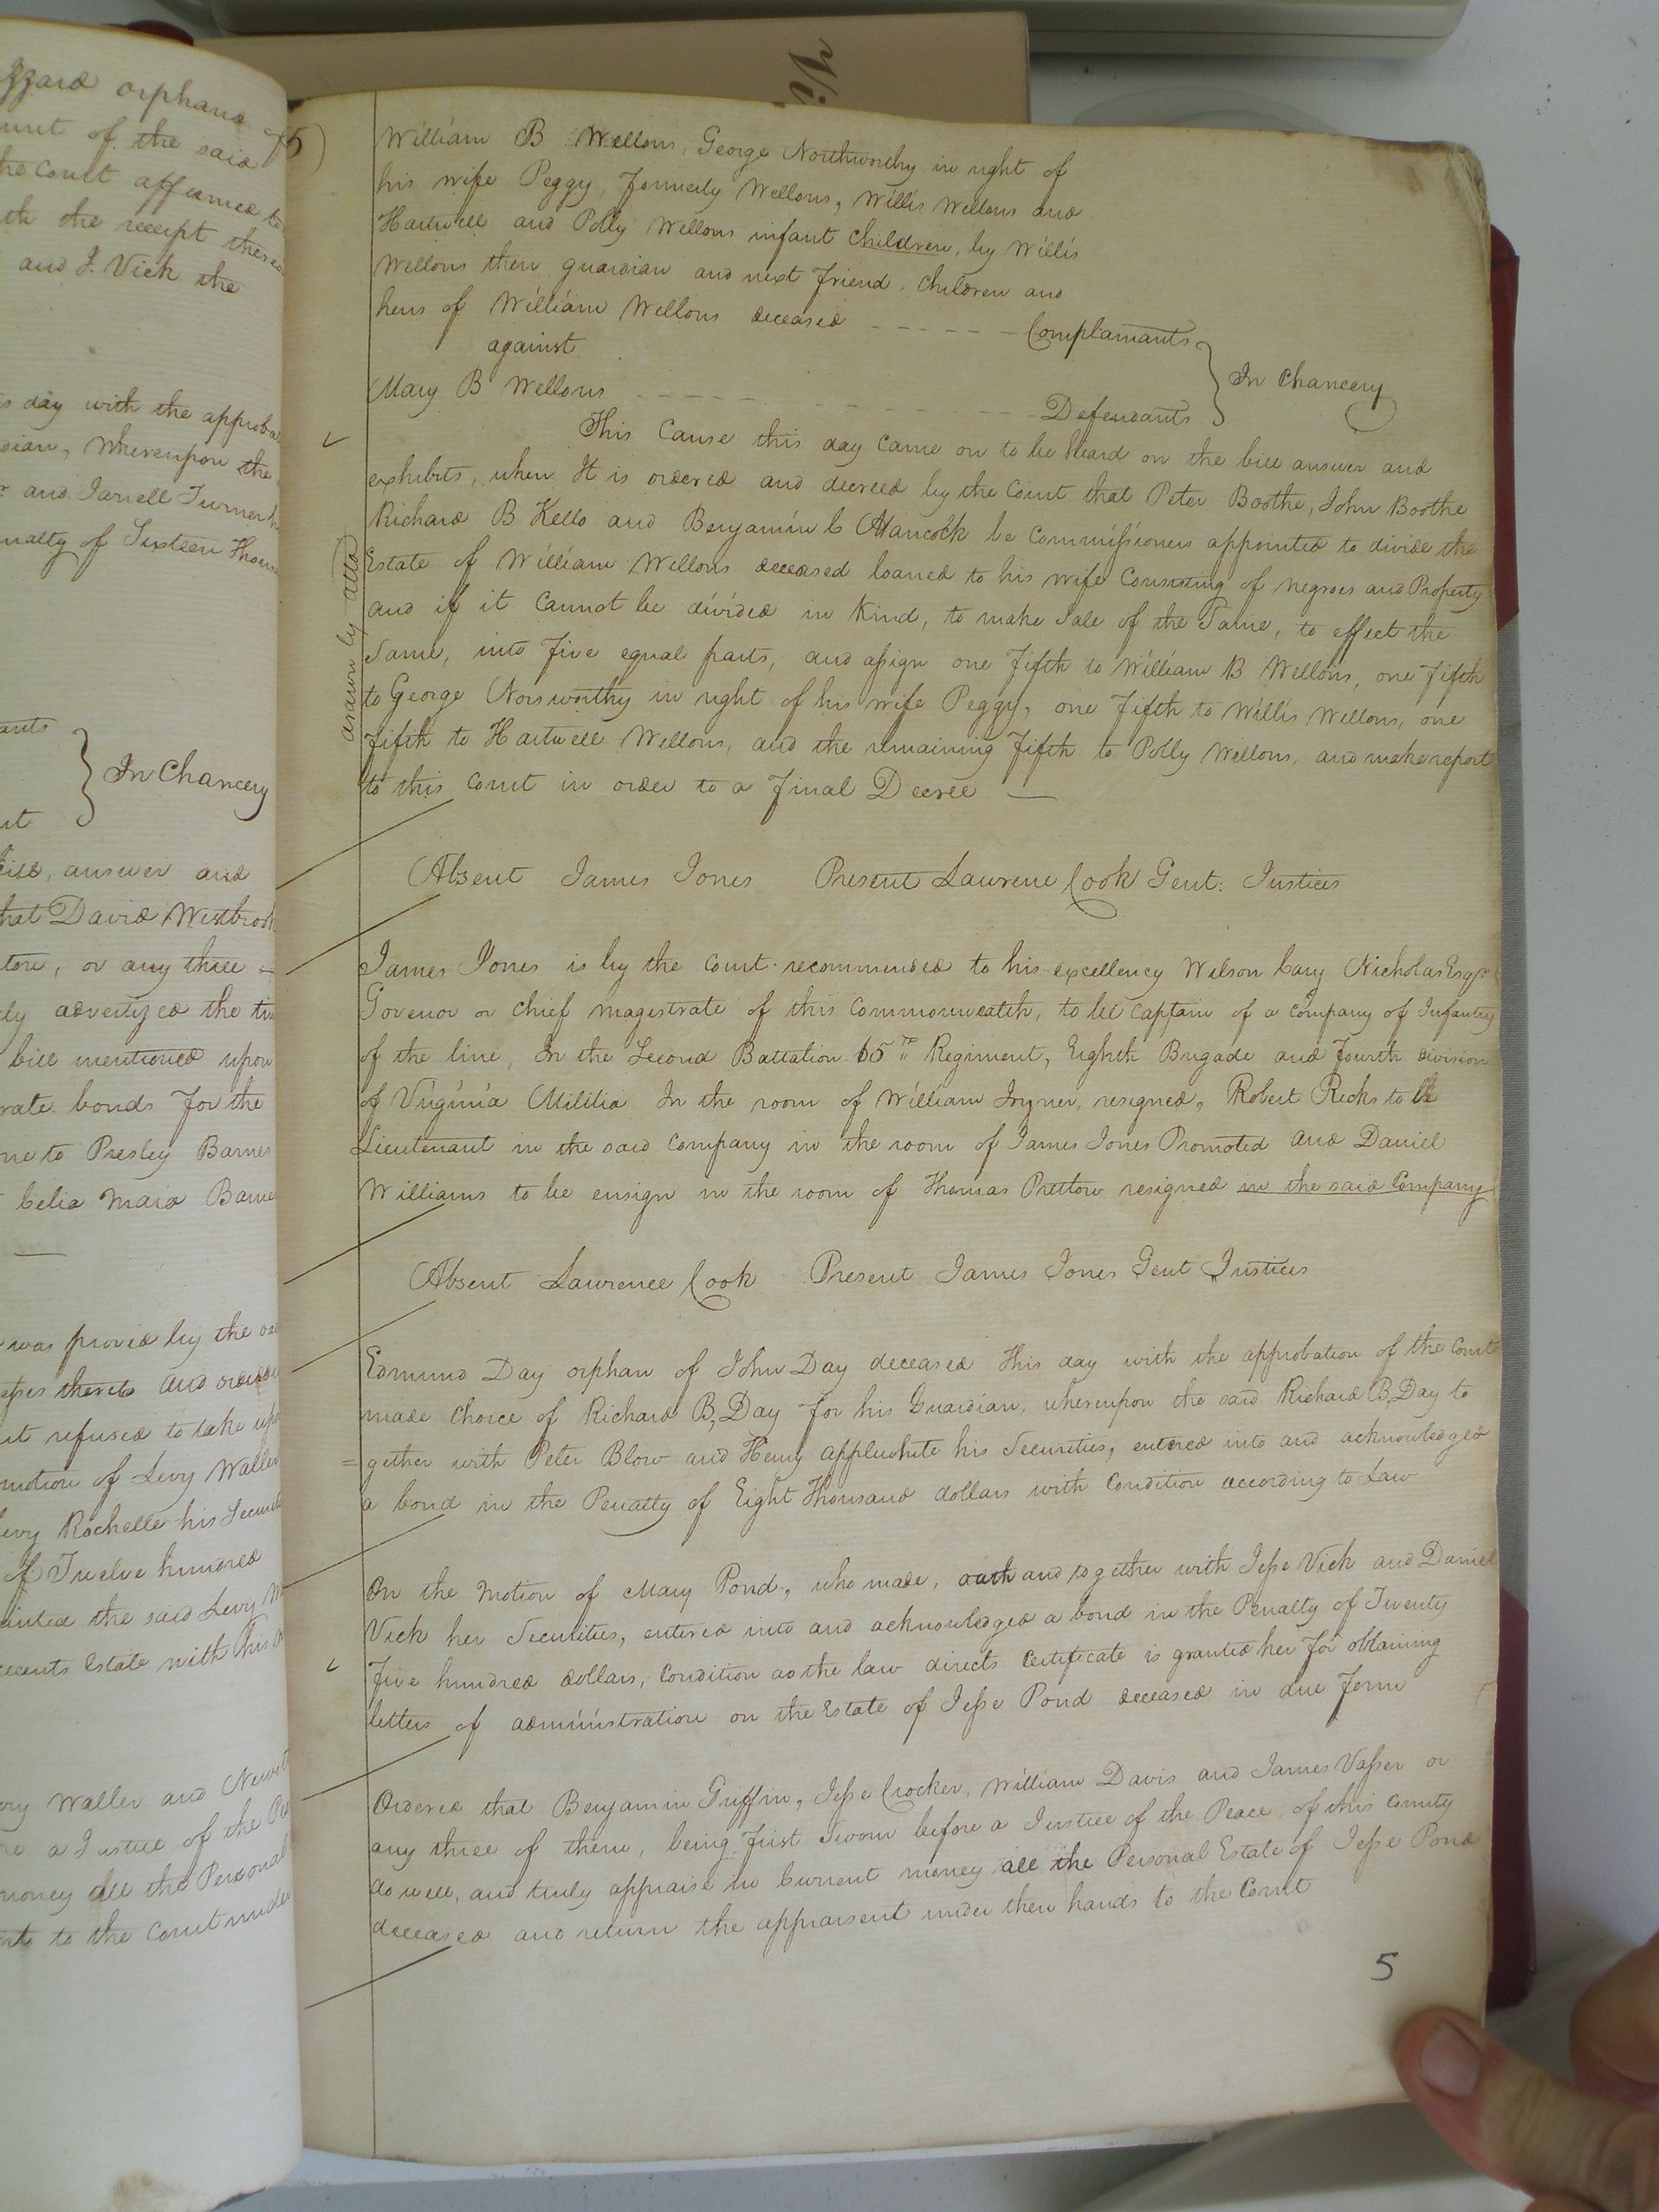 zzard orphans of
unt of the said
he Court affirmed to
th the receipt thereo
and J. Vick the
is day with the approba
dian, Whereupon the
r and Jarrell Turner
nalty of Sixteen Thous
ants
In Chancery
nt
bill, answer and
hat David Westbrook
tore, or any three
ly advertized the tim
bill mentioned upon
rate bonds for the
ne to Presley Barnes
Celia Maid Barne
was proved by the oa
esses thereto and ordere
nt refused to take upo
motion of Levy Waller
evy Rochelle his Securi
of Twelve hundred
ointed the said Levy
ecents Estate with this
ory Waller and
re a Justice of the Pe
money all the Personal
nt to the Court under
5)
William B Wellons, George Northworthy in right of
his wife Peggy, formerly Wellons, Willis Wellons and
Hartwell and Polly Wellons infant Children, by Willis
Wellons their guardian and next friend. Children and
heirs of William Wellons deceased - - - - - - Complainants
against
In Chancery
Mary B Wellons - - - - - - - - - - - - Defendants
This Cause this day came on to be heard on the bill answer and
exhibits, when It is ordered and decreed by the Court that Peter Boothe, John Boothe
Richard B Kello and Benjamin C Hancock be Commissioners appointed to divide the
Estate of William Wellons deceased loaned to his wife Consisting of negroes and Property
and if it Cannot be divided in Kind, to make Sale of the Same, to effect the
Same, into five equal parts, and assign one fifth to William B Wellons, one fifth
to George Norsworthy in right of his wife Peggy, one fifth to Willis Wellons, one
fifth to Hartwell Wellons, and the remaining fifth to Polly Wellons, and make report
to this Court in order to a final Decree —
drawn by atto
Absent James Jones Present Lawrence Cook Gent: Justices
James Jones is by the Court recommended to his excellency Wilson Cary Nicholas Esqr
Govenor or chief magistrate of this Commonwealth, to be Captain of a Company of Infantry
of the line, In the Second Battalion 65th Regiment, Eighth Brigade and fourth division
of Virginia Militia In the room of William Joyner, resigned, Robert Ricks to be
Lieutenant in the said Company in the room of James Jones Promoted and Daniel
Williams to be ensign in the room of Thomas Pretlow resigned in the said Company
Absent Lawrence Cook Present James Jones Gent Justices
Edmund Day orphan of John Day deceased this day with the approbation of the Court
made Choice of Richard B, Day for his Guardian, whereupon the said Richard B, Day to
=gether with Peter Blow and Henry applewhite his Securities, entered into and acknowledged
a bond in the Penalty of Eight Thousand dollars with Condition according to Law
On the Motion of Mary Pond, who made, oath and together with Jesse Vick and Daniel
Vick her Securities, entered into and acknowledged a bond in the Penalty of Twenty
five hundred dollars, Condition as the law directs Certificate is granted her for obtaining
letters of administration on the Estate of Jesse Pond deceased in due form
Ordered that Benjamin Griffin, Jesse Crocker, William Davis and James Vasser or
any three of them, being first Sworn before a Justice of the Peace, of this County
do well, and truly appraise in Current money all the Personal Estate of Jesse Pond
deceased and return the appraisent under their hands to the Court
5